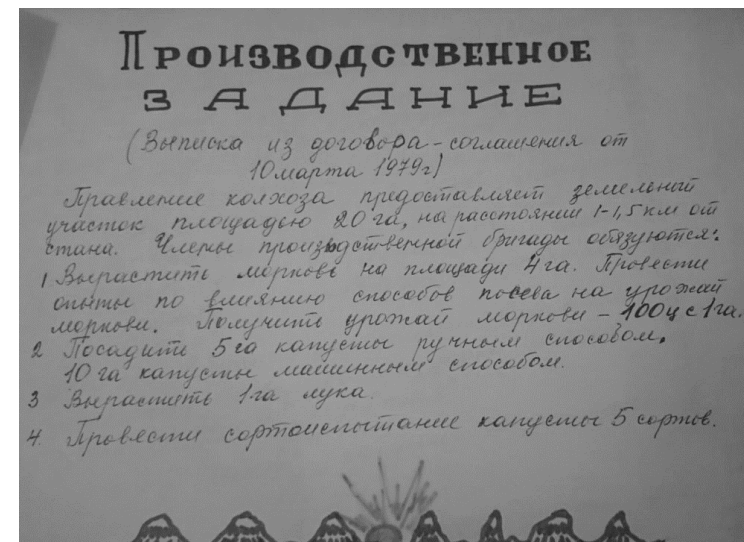 ПРОИЗВОДСТВЕННОЕ
ЗАДАНИЕ
(Выписка из договора-соглашения от
10 марта 1979г)
Правление колхоза предоставляет земельный
участок площадью 20 га, на расстоянии 1-1,5 км от
стана. Члены производственной бригады обязуются:
1 Вырастить морковь на площади 4 га. Провести
опыты по влиянию способов посева на урожай
моркови. Получить урожай моркови - 100 ц с 1 га.
2 Посадить 5 га капусты ручным способом,
10 га капусты машинным способом.
3 Вырастить 1-га лука.
4. Провести сортоиспытание капусты 5 сортов.